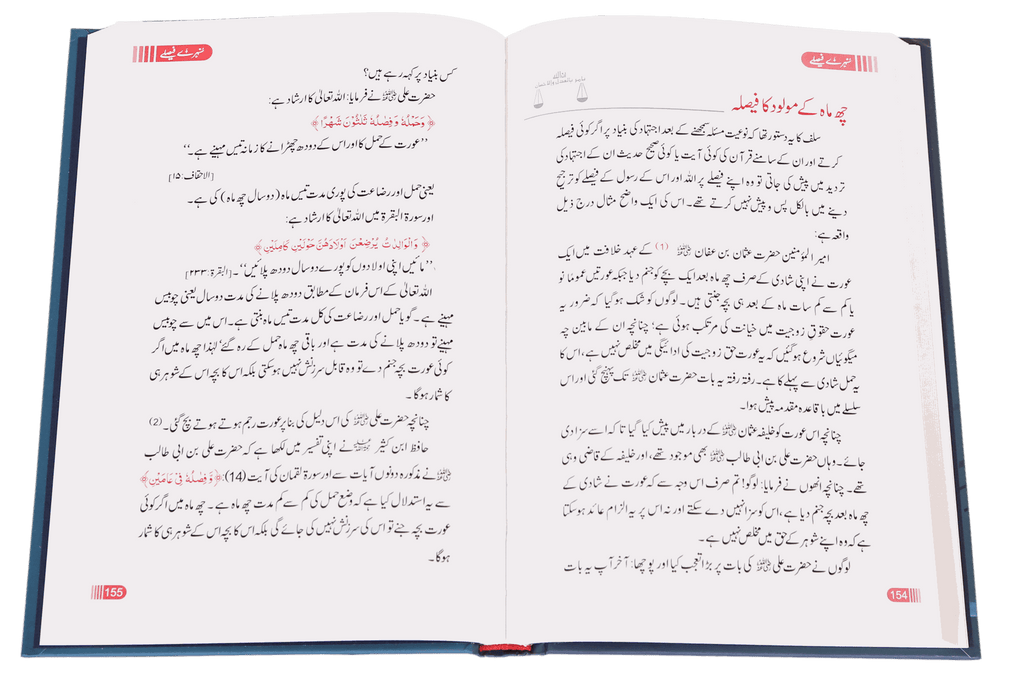 سنہرے فیصلے
چھ ماہ کے مولود کا فیصلہ
سلف کا یہ دستور تھا کہ نوعیت مسئلہ سمجھنے کے بعد اجتہاد کی بنیاد پر اگر کوئی فیصلہ
کرتے اور ان کے سامنے قرآن کی کوئی آیت یا کوئی صحیح حدیث ان کے اجتہاد کی
تردید میں پیش کی جاتی تو وہ اپنے فیصلے پر اللہ اور اس کے رسول کے فیصلے کو ترجیح
دینے میں بالکل پس و پیش نہیں کرتے تھے۔ اس کی ایک واضح مثال درج ذیل
واقعہ ہے:
امیر المؤمنین حضرت عثمان بن عفان ﷛ (1) کے عہد خلافت میں ایک
عورت نے اپنی شادی کے صرف چھ ماہ بعد ایک بچے کو جنم دیا جبکہ عورتیں عموماً نو
یا کم سے کم سات ماہ کے بعد ہی بچہ جنتی ہیں۔ لوگوں کو شک ہو گیا کہ ضرور یہ
عورت حقوقِ زوجیت میں خیانت کی مرتکب ہوئی ہے؛ چنانچہ ان کے مابین چہ
میگوئیاں شروع ہو گئیں کہ یہ عورت حق زوجیت کی ادائیگی میں مخلص نہیں ہے، اس کا
یہ حمل شادی سے پہلے کا ہے۔ رفتہ رفتہ یہ بات حضرت عثمان ﷛ تک پہنچ گئی اور اس
سلسلے میں باقاعدہ مقدمہ پیش ہوا۔
چنانچہ اس عورت کو خلیفہ عثمان ﷛ کے دربار میں پیش کیا گیا تاکہ اسے سزا دی
جائے۔ وہاں حضرت علی بن ابی طالب ﷛ بھی موجود تھے، اور خلیفہ کے قاضی وہی
تھے۔ چنانچہ انھوں نے فرمایا: لوگو! تم صرف اس وجہ سے کہ عورت نے شادی کے
چھ ماہ بعد بچہ جنم دیا ہے، اس کو سزا نہیں دے سکتے اور نہ اس پر یہ الزام عائد ہو سکتا
ہے کہ وہ اپنے شوہر کے حق میں مخلص نہیں ہے۔
لوگوں نے حضرت علی ﷛ کی بات پر بڑا تعجب کیا اور پوچھا: آخر آپ یہ بات
154
سنہرے فیصلے
کس بنیاد پر کہہ رہے ہیں؟
حضرت علی ﷛ نے فرمایا: اللہ تعالیٰ کا ارشاد ہے:
﴿ وَحَمْلُهُ وَفِصٰلُهُ ثَلٰثُوْنَ شَهْرًا ﴾
’’عورت کے حمل کا اور اس کے دودھ چھڑانے کا زمانہ تیس مہینے ہے۔‘‘
[الاحقاف: ۱۵]
یعنی حمل اور رضاعت کی پوری مدت تیس ماہ (دو سال چھ ماہ) کی ہے۔
اور سورۃ البقرۃ میں اللہ تعالیٰ کا ارشاد ہے:
﴿ وَالْوَالِدٰتُ يُرْضِعْنَ اَوْلَادَهُنَّ حَوْلَيْنِ كَامِلَيْنِ ﴾
’’مائیں اپنی اولادوں کو پورے دو سال دودھ پلائیں‘‘۔ [البقرۃ: ۲۳۳]
اللہ تعالیٰ کے اس فرمان کے مطابق دودھ پلانے کی مدت دو سال یعنی چوبیس
مہینے ہے۔ گویا حمل اور رضاعت کی کل مدت تیس ماہ بنتی ہے۔ اس میں سے چوبیس
مہینے تو دودھ پلانے کی مدت ہے اور باقی چھ ماہ حمل کے رہ گئے‘ لہٰذا چھ ماہ میں اگر
کوئی عورت بچہ جنم دے تو وہ قابل سرزنش نہیں ہو سکتی بلکہ اس کا بچہ اس کے شوہر ہی
کا شمار ہوگا۔
چنانچہ حضرت علی ﷛ کی اس دلیل کی بنا پر عورت رجم ہوتے ہوتے بچ گئی۔ (2)
حافظ ابن کثیر نے اپنی تفسیر میں لکھا ہے کہ حضرت علی بن ابی طالب
﷛ نے مذکورہ دونوں آیات سے اور سورۃ لقمان کی آیت (14): ﴿ وَّفِصٰلُهُ فِيْ عَامَيْنِ ﴾
سے یہ استدلال کیا ہے کہ وضع حمل کی کم سے کم مدت چھ ماہ ہے۔ چھ ماہ میں اگر کوئی
عورت بچہ جنے تو اس کی سرزنش نہیں کی جائے گی بلکہ اس کا بچہ اس کے شوہر ہی کا شمار
ہوگا۔
155